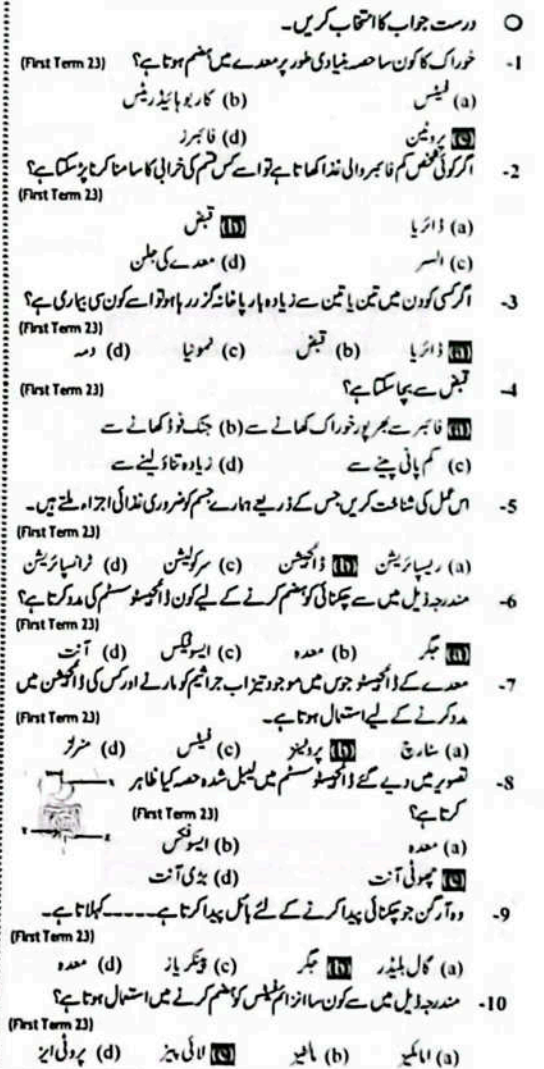 ○ درست جواب کا انتخاب کریں۔
1- خوراک کا کون سا حصہ بنیادی طور پر معدے میں ہضم ہوتا ہے؟ (First Term 23)
(a) فیٹس (b) کاربوہائیڈریٹس
(c) پروٹین (d) فائبرز
2- اگر کوئی شخص کم فائبر والی غذا کھاتا ہے تو اسے کس قسم کی خرابی کا سامنا کرنا پڑ سکتا ہے؟
(First Term 23)
(a) ڈائریا (b) قبض
(c) السر (d) معدے کی جلن
3- اگر کسی کو دن میں تین یا تین سے زیادہ بار پاخانہ گزر رہا ہو تو اسے کون سی بیماری ہے؟
(First Term 23)
(a) ڈائریا (b) قبض (c) نمونیا (d) دمہ
4- قبض سے بچا سکتا ہے؟ (First Term 23)
(a) فائبر سے بھرپور خوراک کھانے سے (b) جنک فوڈ کھانے سے
(c) کم پانی پینے سے (d) زیادہ تناؤ لینے سے
5- اس عمل کی شناخت کریں جس کے ذریعے ہمارے جسم کو ضروری غذائی اجزاء ملتے ہیں۔
(First Term 23)
(a) ریسپائریشن (b) ڈائجیشن (c) سرکولیشن (d) ٹرانسپائریشن
6- مندرجہ ذیل میں سے چکنائی کو ہضم کرنے کے لیے کون ڈائجیسٹو سسٹم کی مدد کرتا ہے؟
(First Term 23)
(a) جگر (b) معدہ (c) ایسوفیگس (d) آنت
7- معدے کے ڈائجیسٹو جوس میں موجود تیزاب جراثیم کو مارنے اور کس کی ڈائجیشن میں
مدد کرنے کے لیے استعمال ہوتا ہے۔ (First Term 23)
(a) سٹارچ (b) پروٹینز (c) فیٹس (d) منرلز
8- تصویر میں دیے گئے ڈائجیسٹو سسٹم میں لیبل شدہ حصہ کیا ظاہر
کرتا ہے؟ (First Term 23)
(a) معدہ (b) ایسوفیگس
(c) چھوٹی آنت (d) بڑی آنت
9- وہ آرگن جو چکنائی پیدا کرنے کے لئے بائل پیدا کرتا ہے ۔۔۔۔۔ کہلاتا ہے۔
(First Term 23)
(a) گال بلیڈر (b) جگر (c) پینکریاز (d) معدہ
10- مندرجہ ذیل میں سے کون سا انزائم فیٹس کو ہضم کرنے میں استعمال ہوتا ہے؟
(First Term 23)
(a) امائلیز (b) مالٹیز (c) لائی پیز (d) پروٹی ایز